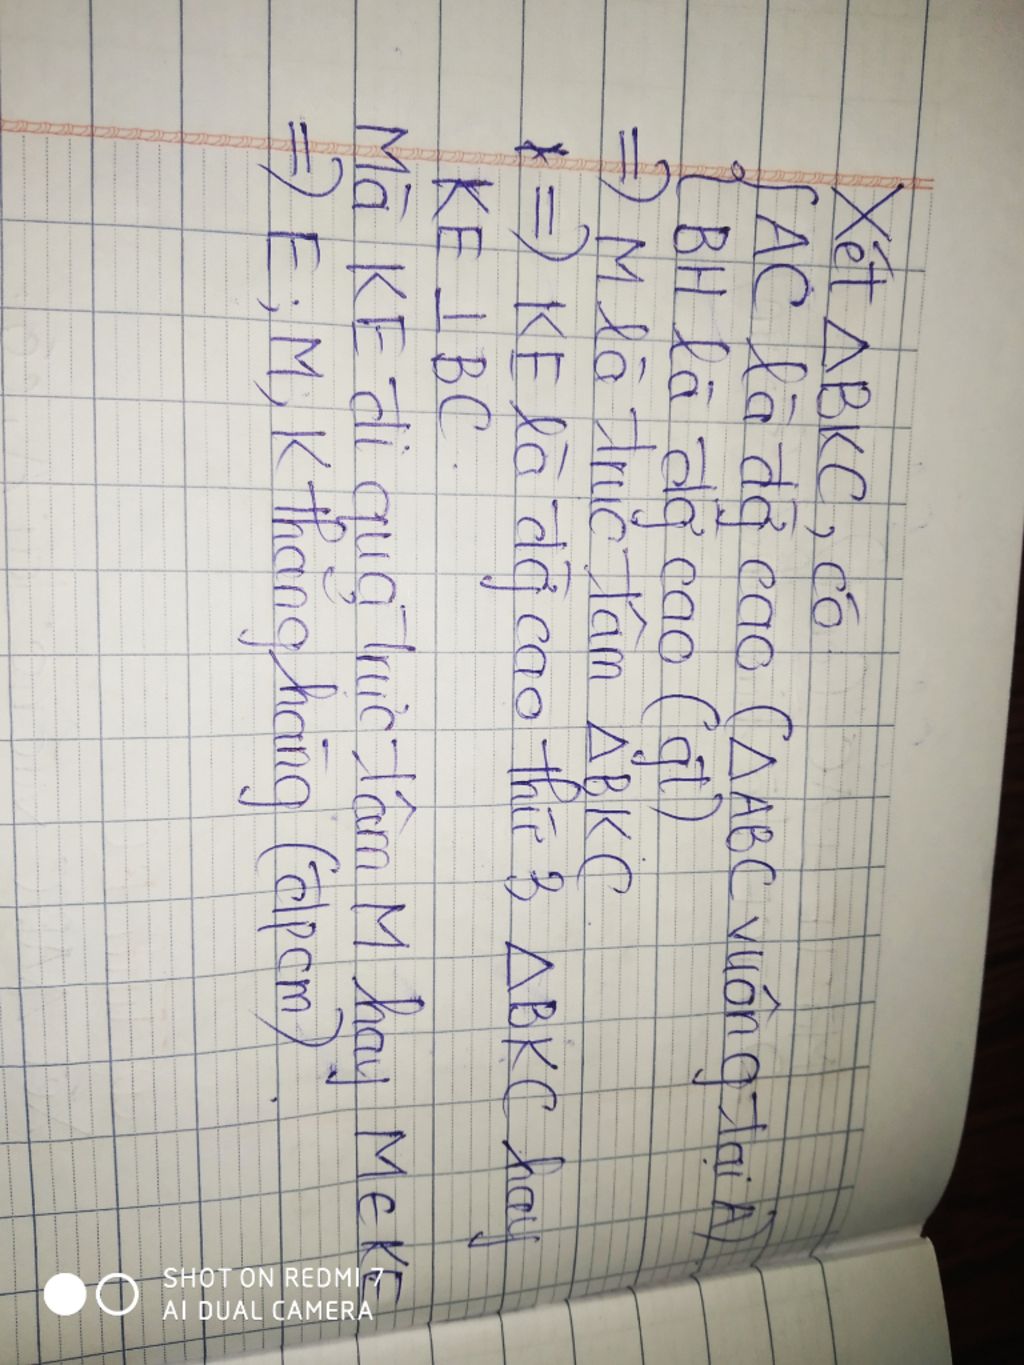 Xét ΔBKC, có
{ AC là đg cao (ΔABC vuông tại A)
BH là đg cao (gt)
=) M là trực tâm ΔBKC
=) KE là đg cao thứ 3 ΔBKC hay
KE ⊥ BC.
Mà KE đi qua trực tâm M hay M∈KE
=) E, M, K thẳng hàng (đpcm)
SHOT ON REDMI 7
AI DUAL CAMERA